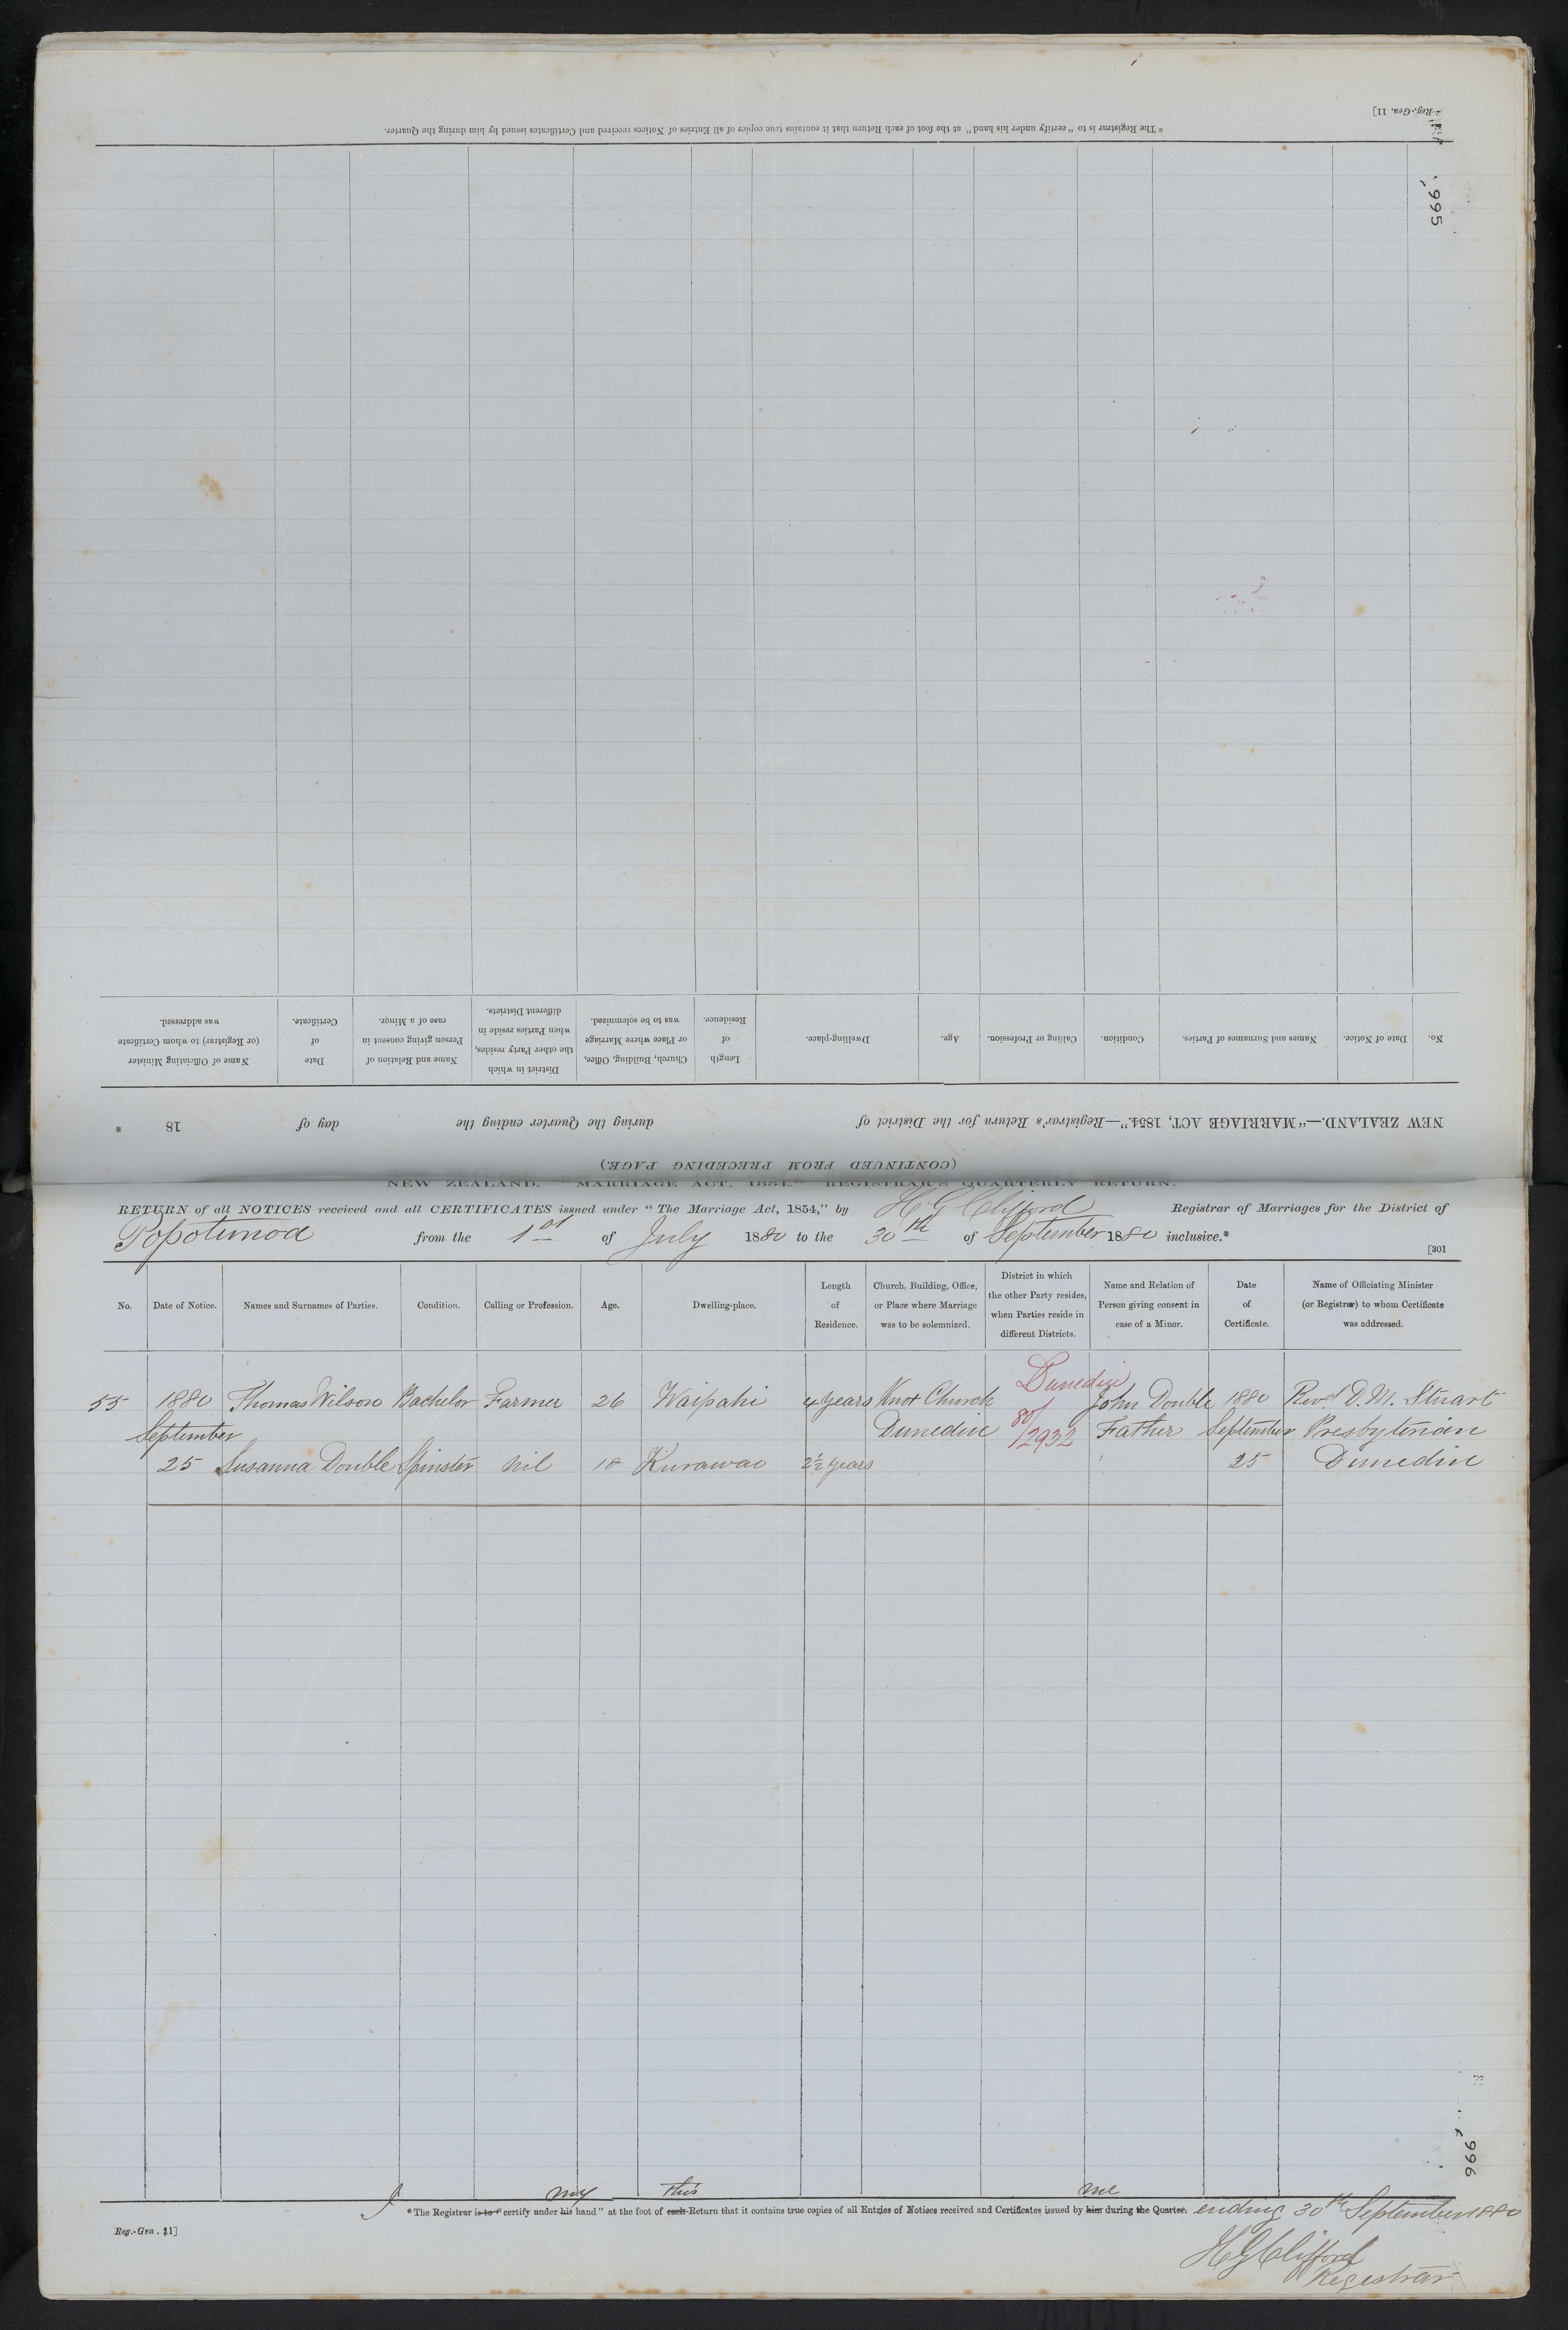 Reg.-Gen. 11]
* The Registrar is to "certify under his hand" at the foot of each Return that it contains true copies of all Entries of Notices received and Certificates issued by him during the Quarter.
995
No.
Date of Notice.
Names and Surnames of Parties.
Condition.
Calling or Profession.
Age.
Dwelling-place.
Length
of
Residence.
Church, Building, Office,
or Place where Marriage
was to be solemnized.
District in which
the other Party resides,
when Parties reside in
different Districts.
Name and Relation of
Person giving consent in
case of a Minor.
Date
of
Certificate.
Name of Officiating Minister
(or Registrar) to whom Certificate
was addressed.
NEW ZEALAND.—"MARRIAGE ACT, 1854."—Registrar's Return for the District of during the Quarter ending the day of 18 *
(CONTINUED FROM PRECEDING PAGE)
NEW ZEALAND. "MARRIAGE ACT, 1854." REGISTRAR'S QUARTERLY RETURN.
RETURN of all NOTICES received and all CERTIFICATES issued under "The Marriage Act, 1854," by H G Clifford Registrar of Marriages for the District of
Popotunoa from the 1st of July 1880 to the 30th of September 1880 inclusive.*
[301
No.
Date of Notice.
Names and Surnames of Parties.
Condition.
Calling or Profession.
Age.
Dwelling-place.
Length
of
Residence.
Church, Building, Office,
or Place where Marriage
was to be solemnized.
District in which
the other Party resides,
when Parties reside in
different Districts.
Name and Relation of
Person giving consent in
case of a Minor.
Date
of
Certificate.
Name of Officiating Minister
(or Registrar) to whom Certificate
was addressed.
Dunedin
55 1880 Thomas Wilson Bachelor Farmer 26 Waipahi 4 years Knox Church John Double 1880 Revd D. M. Stuart
September Dunedin 80/2932 Father September Presbyterian
25 Susanna Double Spinster Nil 18 Kurawao 2½ years 25 Dunedin
996
I my this me
* The Registrar is to "certify under his hand" at the foot of each Return that it contains true copies of all Entries of Notices received and Certificates issued by him during the Quarter. ending 30th September 1880
Reg.-Gen. 11]
H G Clifford
Registrar